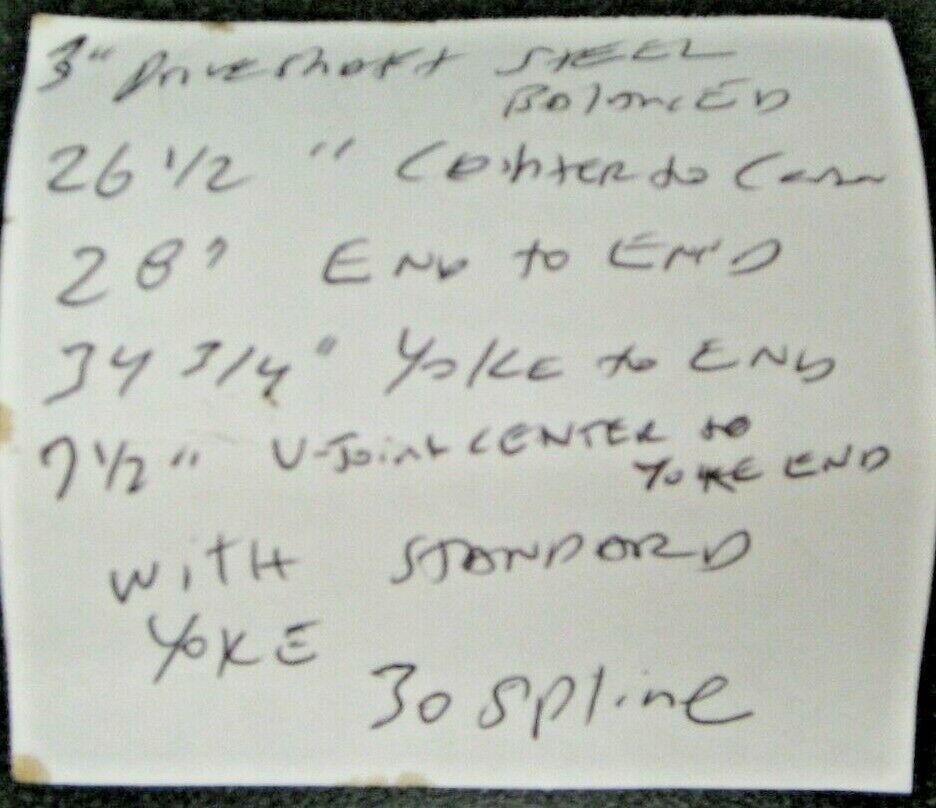 3" Driveshaft STEEL
BalancED
26 1/2 " CEnter to Cen
28" END to END
34 3/4" YOKE to END
7 1/2" U-Joint CENTER to
YOKE END
WiTH STANDARD
YOKE
30 Spline